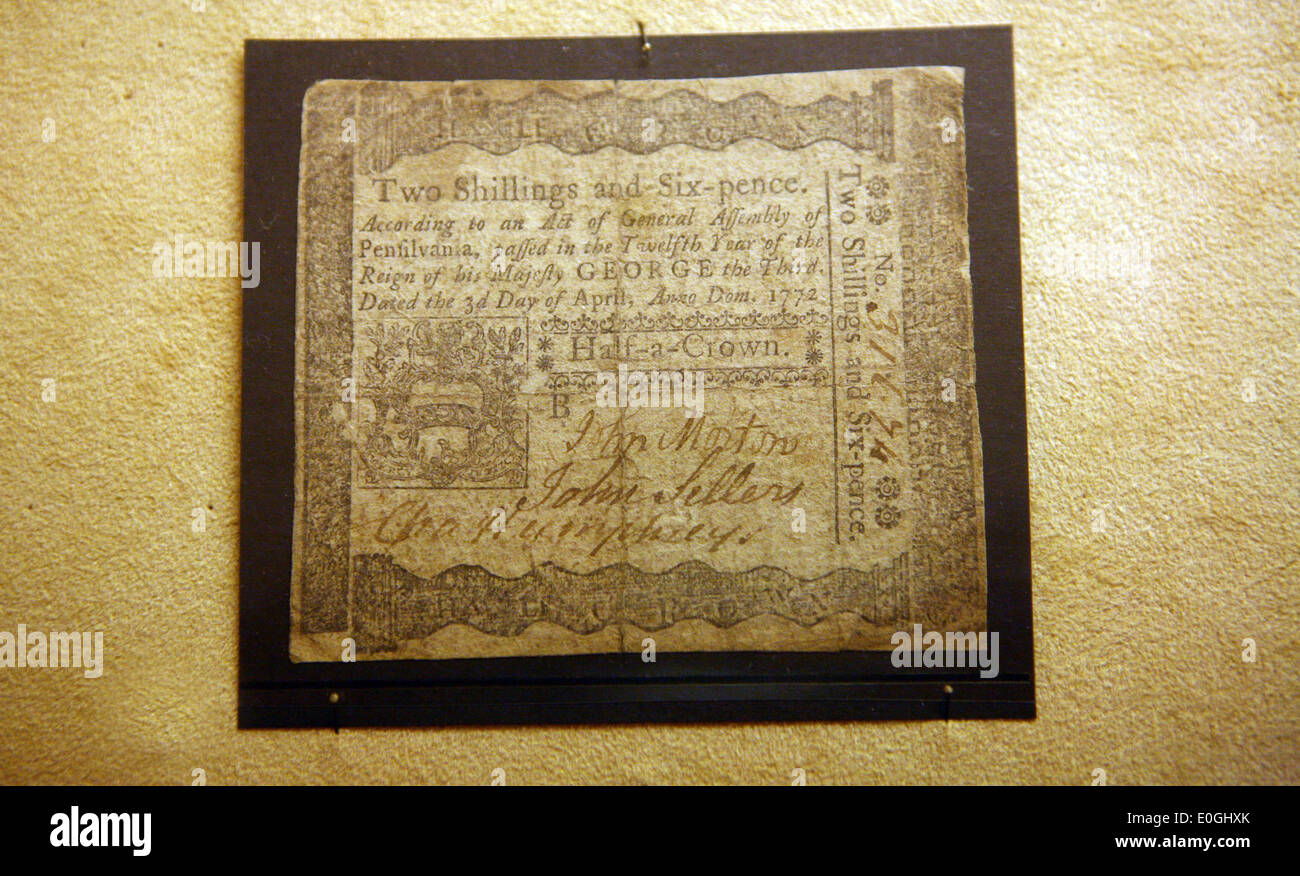 HALF CROWN
Two Shillings and Six-pence.
According to an Act of General Aſſembly of
Penſilvania, paſſed in the Twelfth Year of the
Reign of his Majeſty GEORGE the Third.
Dated the 3d Day of April, Anno Dom. 1772
Half-a-Crown.
B
John Morton
John Sellers
Humphreys.
No.
Two Shillings and Six-pence.
alamy
a
alamy
Image ID: E0GHXK
www.alamy.com